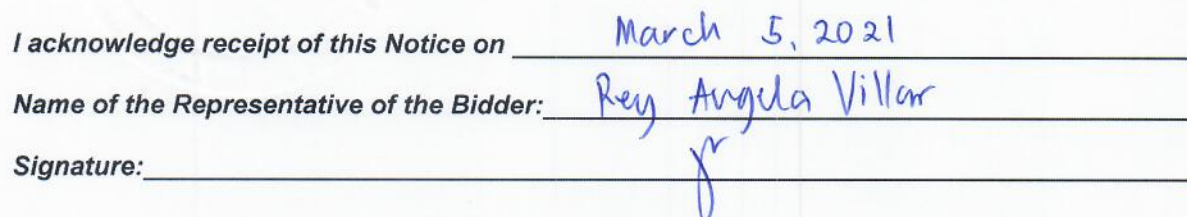 I acknowledge receipt of this Notice on March 5, 2021
Name of the Representative of the Bidder: Rey Angela Villar
Signature: